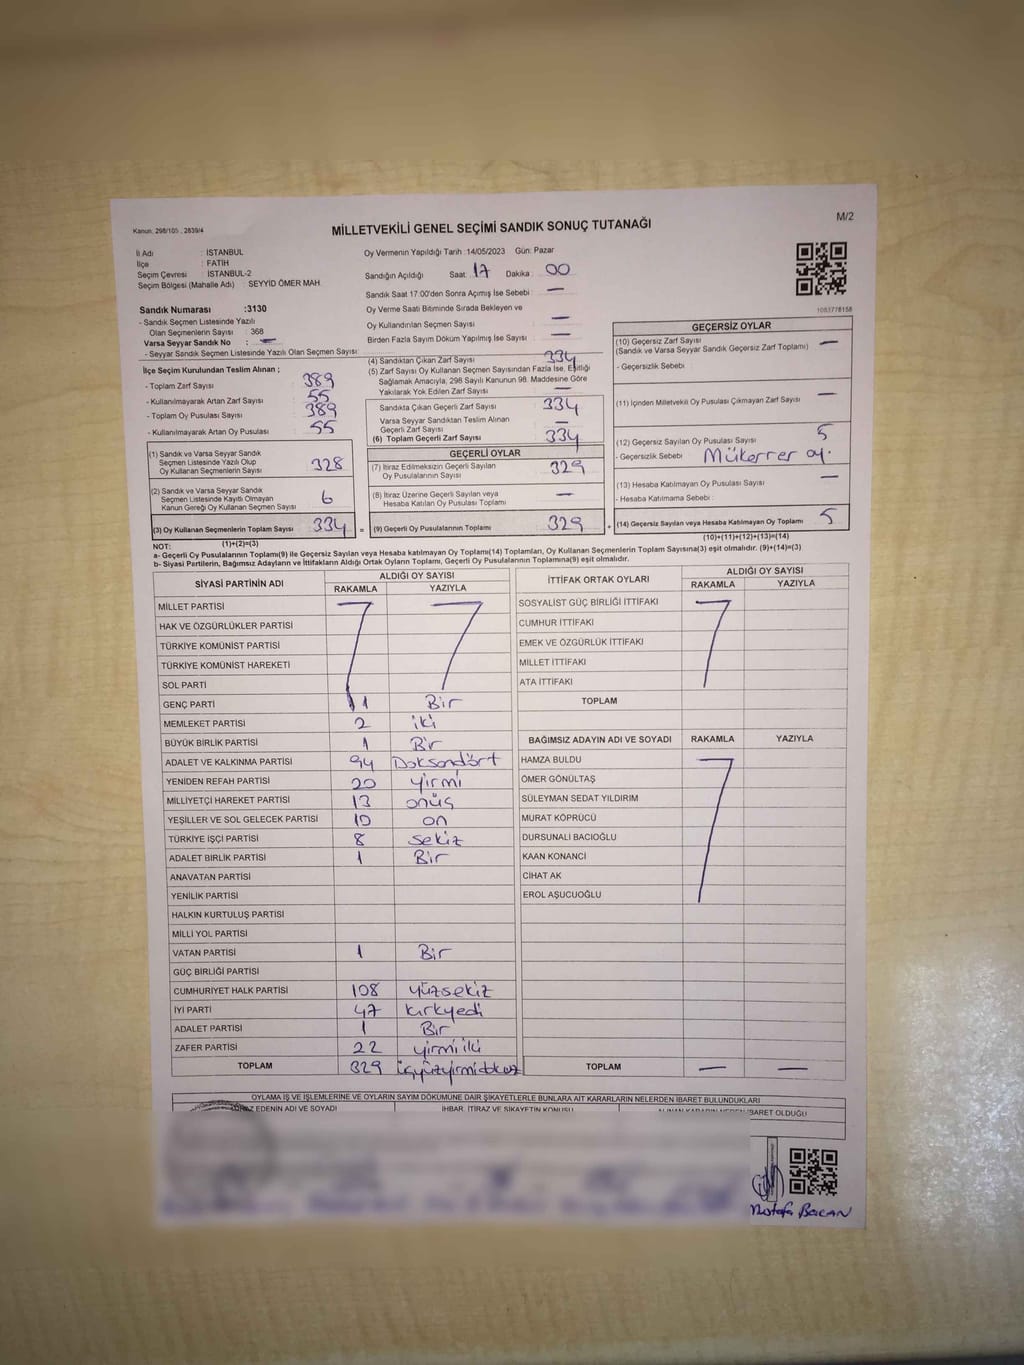 M/2
Kanun. 298/105 . 2839/4
MİLLETVEKİLİ GENEL SEÇİMİ SANDIK SONUÇ TUTANAĞI
İl Adı : İSTANBUL
İlçe : FATİH
Seçim Çevresi : İSTANBUL-2
Seçim Bölgesi (Mahalle Adı) : SEYYİD ÖMER MAH.
Sandık Numarası :3130
- Sandık Seçmen Listesinde Yazılı
Olan Seçmenlerin Sayısı : 368
Varsa Seyyar Sandık No : —
- Seyyar Sandık Seçmen Listesinde Yazılı Olan Seçmen Sayısı:
Oy Vermenin Yapıldığı Tarih :14/05/2023 Gün: Pazar
Sandığın Açıldığı Saat: 17 Dakika : 00
Sandık Saat 17:00'den Sonra Açımış İse Sebebi : —
Oy Verme Saati Bitiminde Sırada Bekleyen ve
Oy Kullandırılan Seçmen Sayısı : —
Birden Fazla Sayım Döküm Yapılmış İse Sayısı : —
1083778158
İlçe Seçim Kurulundan Teslim Alınan ;
- Toplam Zarf Sayısı : 389
- Kullanılmayarak Artan Zarf Sayısı : 55
- Toplam Oy Pusulası Sayısı : 389
- Kullanılmayarak Artan Oy Pusulası : 55
(1) Sandık ve Varsa Seyyar Sandık
Seçmen Listesinde Yazılı Olup
Oy Kullanan Seçmenlerin Sayısı 328
(2) Sandık ve Varsa Seyyar Sandık
Seçmen Listesinde Kayıtlı Olmayan
Kanun Gereği Oy Kullanan Seçmen Sayısı 6
(3) Oy Kullanan Seçmenlerin Toplam Sayısı 334
(1)+(2)=(3)
(4) Sandıktan Çıkan Zarf Sayısı : 334
(5) Zarf Sayısı Oy Kullanan Seçmen Sayısından Fazla İse, Eşitliği
Sağlamak Amacıyla, 298 Sayılı Kanunun 98. Maddesine Göre
Yakılarak Yok Edilen Zarf Sayısı : —
Sandıkta Çıkan Geçerli Zarf Sayısı : 334
Varsa Seyyar Sandıktan Teslim Alınan
Geçerli Zarf Sayısı : —
(6) Toplam Geçerli Zarf Sayısı : 334
GEÇERLİ OYLAR
(7) İtiraz Edilmeksizin Geçerli Sayılan
Oy Pusulalarının Sayısı : 329
(8) İtiraz Üzerine Geçerli Sayılan veya
Hesaba Katılan Oy Pusulası Toplamı : —
= (9) Geçerli Oy Pusulalarının Toplamı : 329
GEÇERSİZ OYLAR
(10) Geçersiz Zarf Sayısı :
(Sandık ve Varsa Seyyar Sandık Geçersiz Zarf Toplamı) —
- Geçersizlik Sebebi :
(11) İçinden Milletvekili Oy Pusulası Çıkmayan Zarf Sayısı : —
(12) Geçersiz Sayılan Oy Pusulası Sayısı : 5
- Geçersizlik Sebebi : Mükerrer oy.
(13) Hesaba Katılmayan Oy Pusulası Sayısı : —
- Hesaba Katılmama Sebebi :
+ (14) Geçersiz Sayılan veya Hesaba Katılmayan Oy Toplamı : 5
(10)+(11)+(12)+(13)=(14)
NOT:
a- Geçerli Oy Pusulalarının Toplamı(9) ile Geçersiz Sayılan veya Hesaba katılmayan Oy Toplamı(14) Toplamları, Oy Kullanan Seçmenlerin Toplam Sayısına(3) eşit olmalıdır. (9)+(14)=(3)
b- Siyasi Partilerin, Bağımsız Adayların ve İttifakların Aldığı Ortak Oyların Toplamı, Geçerli Oy Pusulalarının Toplamına(9) eşit olmalıdır.
SİYASİ PARTİNİN ADI ALDIĞI OY SAYISI
RAKAMLA YAZIYLA
MİLLET PARTİSİ
HAK VE ÖZGÜRLÜKLER PARTİSİ
TÜRKİYE KOMÜNİST PARTİSİ
TÜRKİYE KOMÜNİST HAREKETİ
SOL PARTİ
GENÇ PARTİ 1 Bir
MEMLEKET PARTİSİ 2 iki
BÜYÜK BİRLİK PARTİSİ 1 Bir
ADALET VE KALKINMA PARTİSİ 94 Doksandört
YENİDEN REFAH PARTİSİ 20 yirmi
MİLLİYETÇİ HAREKET PARTİSİ 13 onüç
YEŞİLLER VE SOL GELECEK PARTİSİ 10 on
TÜRKİYE İŞÇİ PARTİSİ 8 sekiz
ADALET BİRLİK PARTİSİ 1 Bir
ANAVATAN PARTİSİ
YENİLİK PARTİSİ
HALKIN KURTULUŞ PARTİSİ
MİLLİ YOL PARTİSİ
VATAN PARTİSİ 1 Bir
GÜÇ BİRLİĞİ PARTİSİ
CUMHURİYET HALK PARTİSİ 108 yüzsekiz
İYİ PARTİ 47 kırkyedi
ADALET PARTİSİ 1 Bir
ZAFER PARTİSİ 22 yirmi iki
TOPLAM 329 üçyüzyirmidokuz
İTTİFAK ORTAK OYLARI ALDIĞI OY SAYISI
RAKAMLA YAZIYLA
SOSYALİST GÜÇ BİRLİĞİ İTTİFAKI
CUMHUR İTTİFAKI
EMEK VE ÖZGÜRLÜK İTTİFAKI
MİLLET İTTİFAKI
ATA İTTİFAKI
TOPLAM
BAĞIMSIZ ADAYIN ADI VE SOYADI RAKAMLA YAZIYLA
HAMZA BULDU
ÖMER GÖNÜLTAŞ
SÜLEYMAN SEDAT YILDIRIM
MURAT KÖPRÜCÜ
DURSUNALİ BACIOĞLU
KAAN KONANCİ
CİHAT AK
EROL AŞUCUOĞLU
TOPLAM — —
OYLAMA İŞ VE İŞLEMLERİNE VE OYLARIN SAYIM DÖKÜMÜNE DAİR ŞİKAYETLERLE BUNLARA AİT KARARLARIN NELERDEN İBARET BULUNDUKLARI
EDENİN ADI VE SOYADI İHBAR, İTİRAZ VE ŞİKAYETİN KONUSU İBARET OLDUĞU
Mustafa